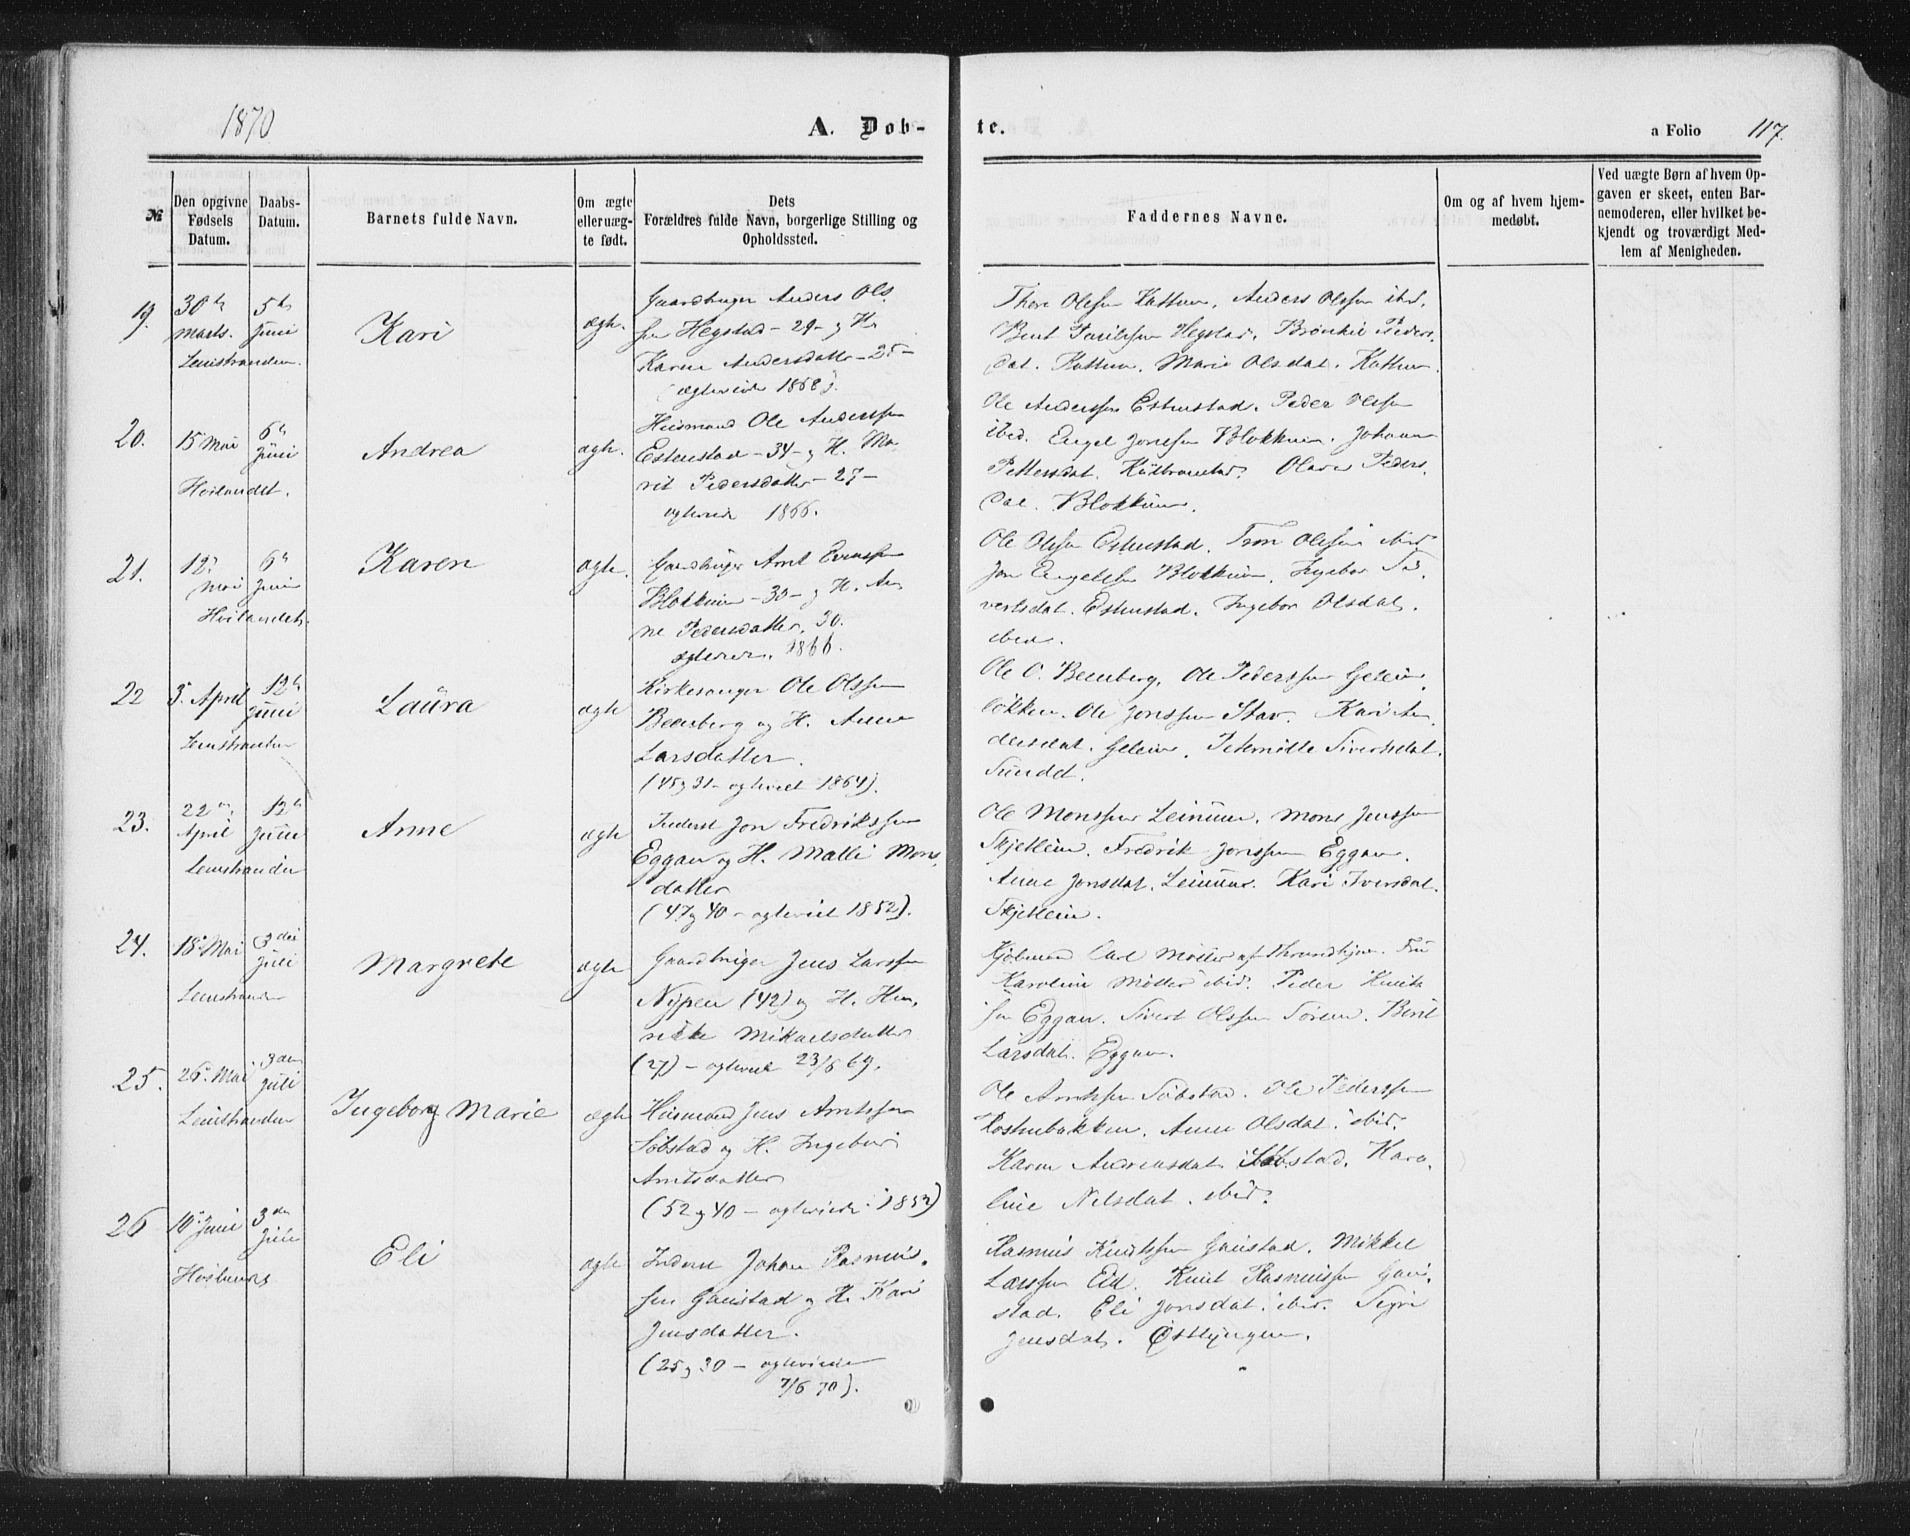 1870
A. Døb-
te.
a Folio 117.
№
Den opgivne Fødsels Datum.
Daabs-Datum.
Barnets fulde Navn.
Om ægte eller uægte født.
Dets Forældres fulde Navn, borgerlige Stilling og Opholdssted.
Faddernes Navne.
Om og af hvem hjemmedøbt.
Ved uægte Børn af hvem Opgaven er skeet, enten Barnemoderen, eller hvilket bekjendt og troværdigt Medlem af Menigheden.
19.
30te Marts.
5te Juni
Leinstranden.
Kari
ægte.
Gaardbruger Anders Ols
sen Hegstad - 29 - og H.
Karen Andersdatter - 25 -
(ægteviede 1868).
Olsen Kattem. Anders Olssen ibid.
Hegstad. Peders
dat. Kattem. Marie Olsdat. Kattem.
20.
15 Mai
6te Juni
Høilandet.
Andrea
ægte.
Husmand Ole Anderssen
Estenstad - 34 - og H. Ma
rit Pedersdatter - 27 -
ægteviede 1866.
Ole Anderssen Estenstad. Peder Olssen
ibid. Engel Jonssen Blokkum. Johann
Pettersdat. Olava Peders
dat. Blokkum.
21.
12. Mai
6te Juni
Høilandet.
Karen
ægte.
Gaardbruger Arnt Evenssen
Blokkum - 30 - og H. An
ne Pedersdatter, 30.
ægteviede. 1866.
Ole Olssen Estenstad. Tron Olssen ibid
Jon Engelssen Blokkum. Ingebor Si
vertsdat. Estenstad. Ingebor Olsdat.
ibid.
22
3. April
12te Juni
Leinstranden
Laura
ægte
Kirkesanger Ole Olssen
Beenberg og H. Anne
Larsdatter.
(45 og 31 - ægteviet 1864).
Ole O. Beenberg. Ole Pederssen
løkken. Ole Jonssen Stav. Kari An
dersdat. Sivertsdat.
Sundet.
23.
22. April
12te Juni
Leinstranden
Anne
ægte
Inderst Jon Fredrikssen
Eggan og H. Malli Mons
datter
(47 og 40 - ægteviet 1852).
Ole Monssen Leinum. Mons Jenssen
Skjetlein. Fredrik Jonssen Eggan.
Anne Jonsdat. Leinum. Kari Iversdat.
Skjetlein.
24.
18. Mai
3die Juli
Leinstranden
Margrete
ægte
Gaardbruger Jens Larssen
Nypen (42) og H. Hen
rikke Mikaelsdatter
(27) - ægteviet 23/6 69.
Kjøbmand Carl Møller af Throndhjem. Fru
Karoline Møller ibid. Peder Knuts
sen Eggan. Sivert Olssen Søren. Berit
Larsdat. Eggan.
25.
26. Mai
3die Juli
Leinstranden
Ingeborg Marie
ægte
Husmand Jens Arntssen
Søbstad og H. Ingebor
Arntsdatter
(52 og 40 - ægteviede 1853)
Ole Arntssen Søbstad. Ole Pederssen
Anne Olsdat. ibid.
Karen Andreasdat. Søbstad. Karo
line Nilsdat. ibid.
26
10. Juni
3die Juli
Eli
ægte
Inderst Johan Rasmus
sen Gaustad og H. Kari
Jensdatter.
(25 og 30 - ægteviede
7/6 70).
Rasmus Knutssen Gaustad. Mikkel
Larssen Eid. Knut Rasmussen Gau
stad. Eli Jonsdat. ibid. Sigri
Jensdat. Østlyngen.